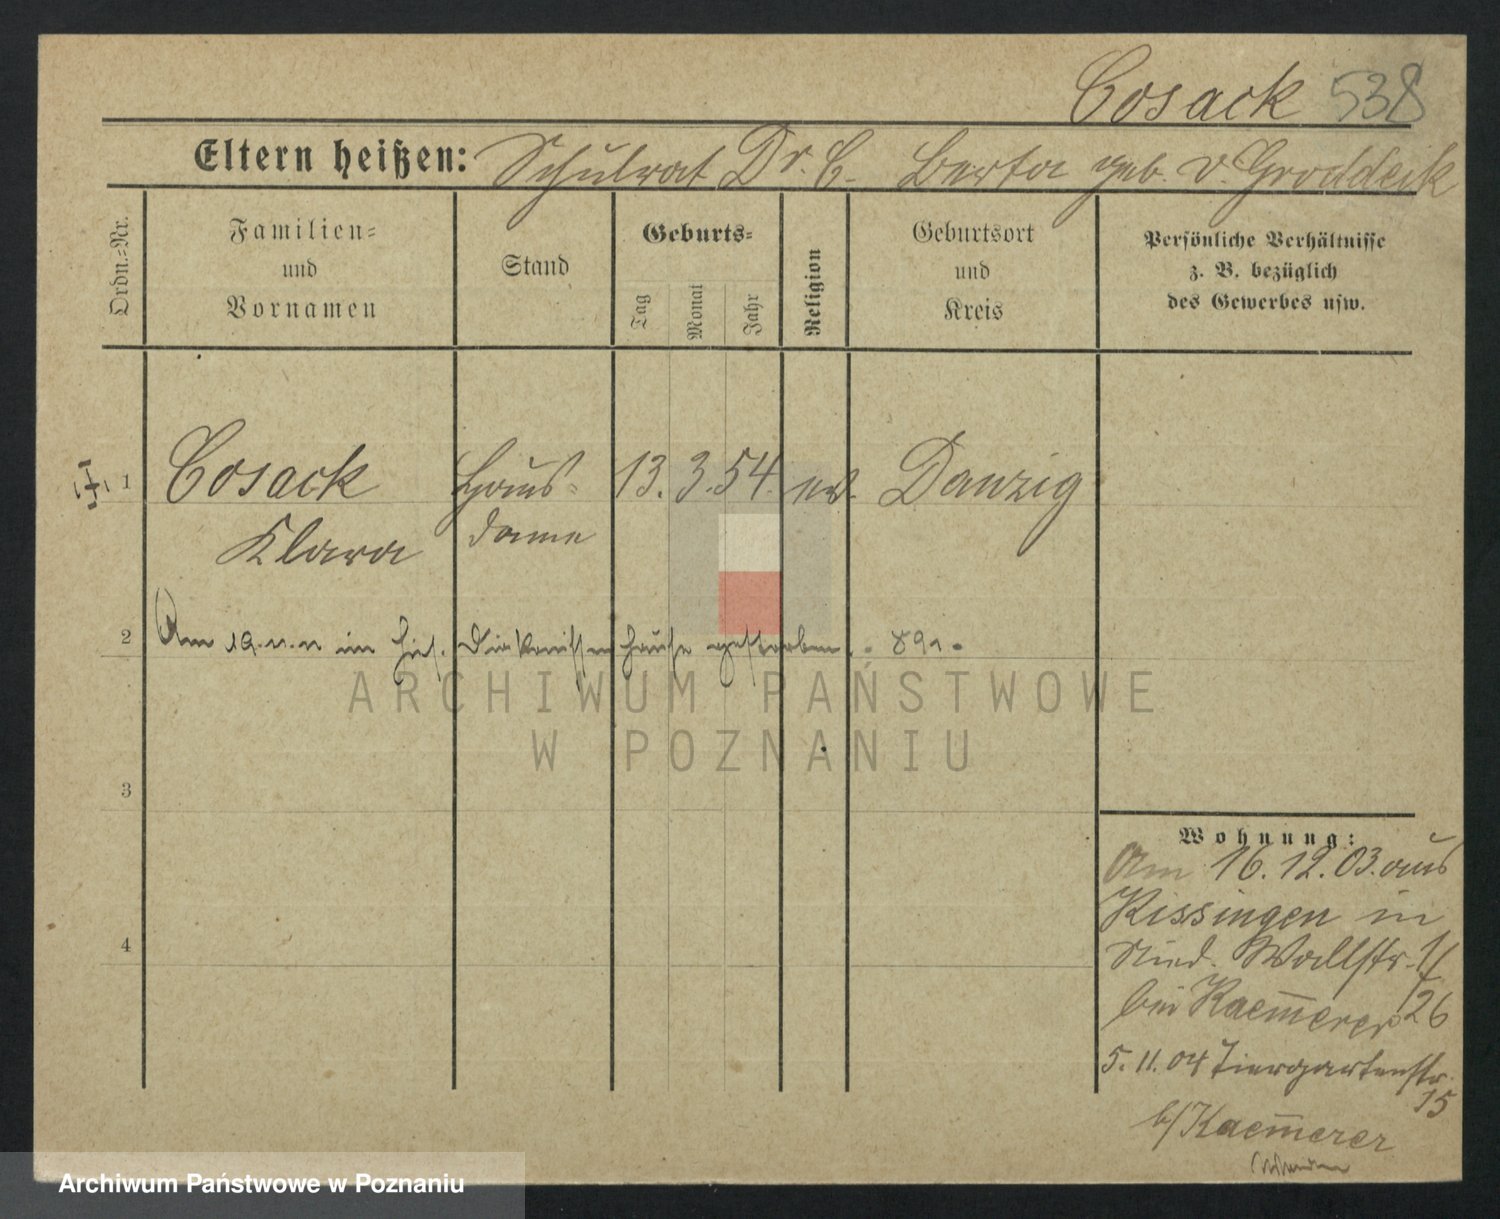 Cosack 538
Eltern heißen: Schulrat Dr. C. Berta geb. v. Groddeck
Ordn.-Nr.
Familien-
und
Vornamen
Stand
Geburts-
Tag Monat Jahr
Religion
Geburtsort
und
Kreis
Persönliche Verhältnisse
z. B. bezüglich
des Gewerbes usw.
1 Cosack Haus- 13. 3. 54. ev. Danzig
Klara dame
2 Am 19. 11. 11 im hies. Diakonissenhause gestorben.
ARCHIWUM PAŃSTWOWE
W POZNANIU
3
4
Wohnung:
Am 16. 12. 03. aus
Kissingen in
Nied. Wallstr. 1/
bei Kaem̄erer 26
5. 11. 04 Tiergartenstr.
15
b/Kaem̄erer
Archiwum Państwowe w Poznaniu